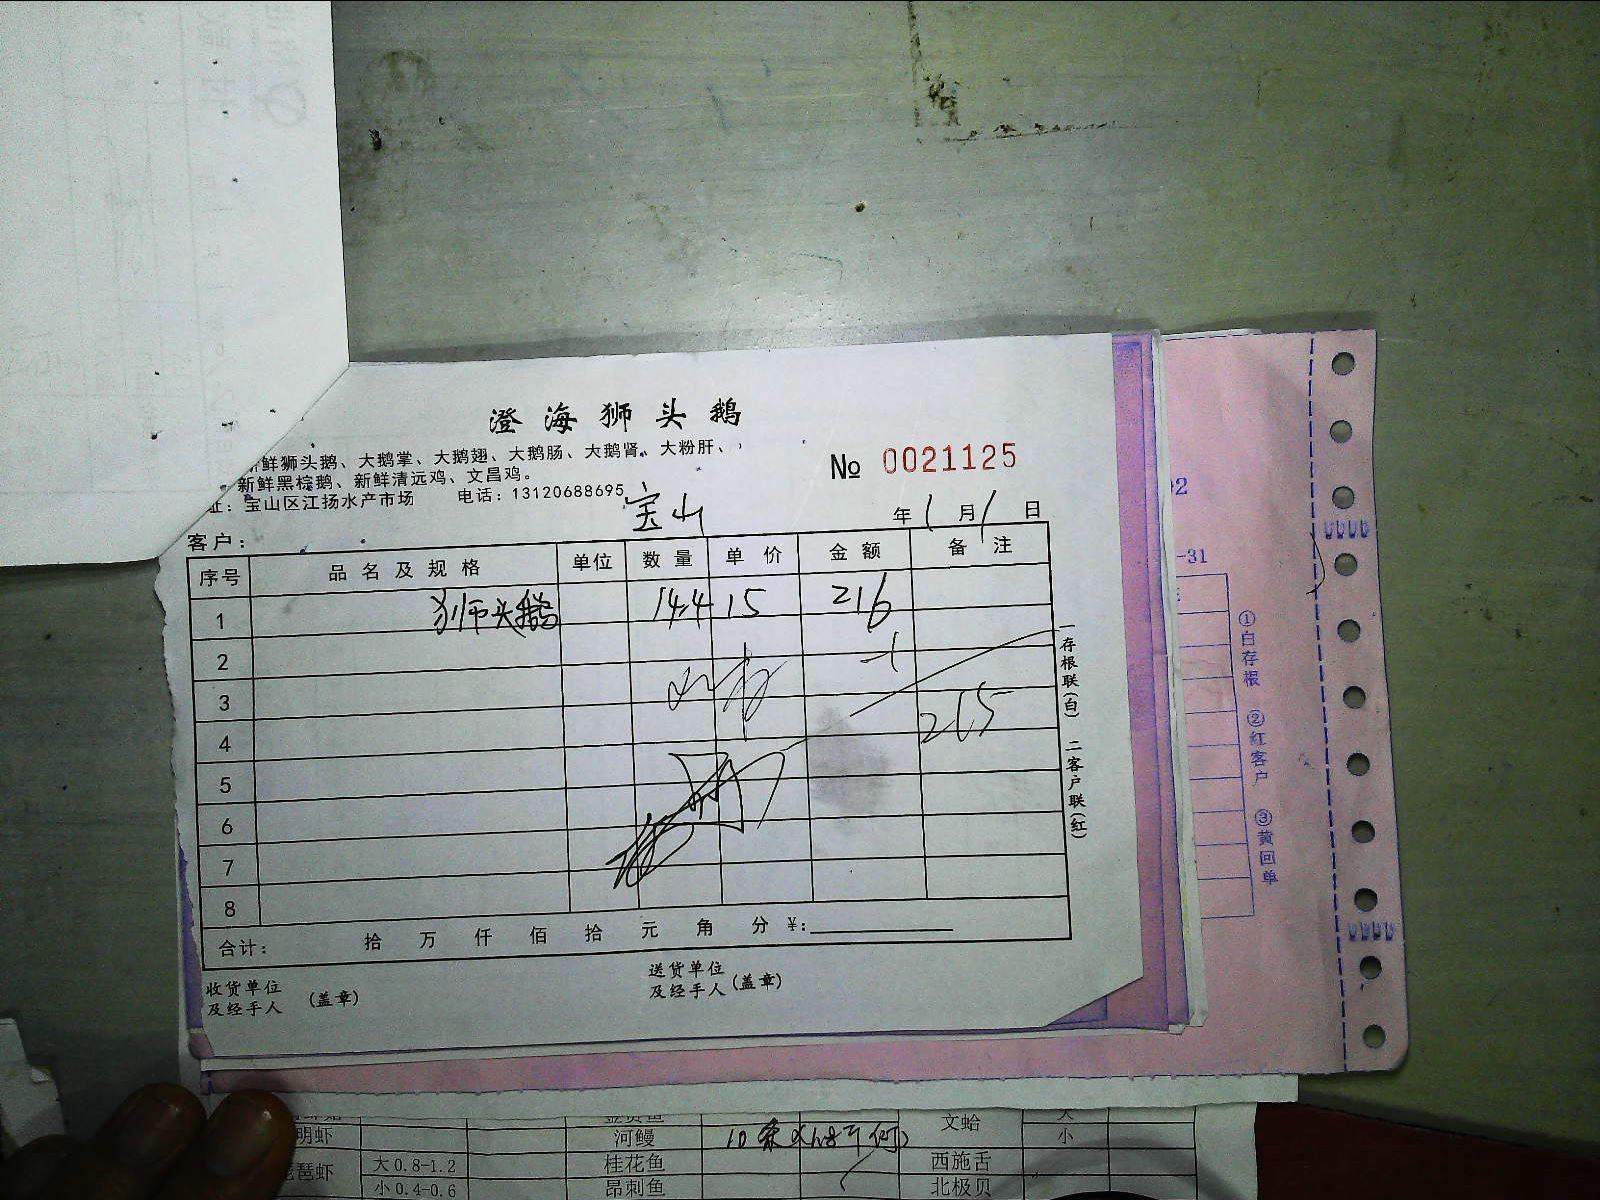 澄海狮头鹅
新鲜狮头鹅、大鹅掌、大鹅翅、大鹅肠、大鹅肾、大粉肝、
新鲜黑棕鹅、新鲜清远鸡、文昌鸡。
址：宝山区江扬水产市场 电话：13120688695
№ 0021125
宝山
年 1 月 1 日
客户：
序号 品名及规格 单位 数量 单价 金额 备注
1 狮头鹅 14.4 15 216
2 -1
3
4 215
5
6
7
8
合计： 拾 万 仟 佰 拾 元 角 分 ¥：
收货单位及经手人（盖章）
送货单位及经手人（盖章）
一存根联(白) 二客户联(红)
①白存根 ②红客户 ③黄回单
-31
明虾 河鳗 文蛤 小
琵琶虾 大0.8-1.2 桂花鱼 西施舌
小0.4-0.6 昂刺鱼 北极贝